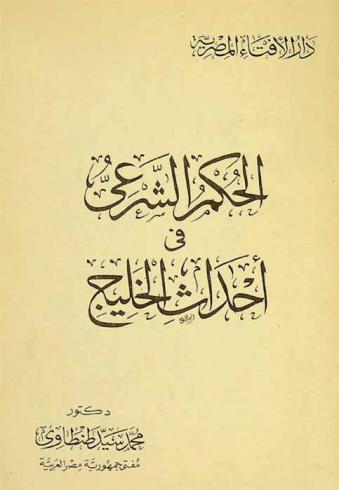 دار الإفتاء المصرية
الحكم الشرعى
فى
أحداث الخليج
دكتور
محمد سيد طنطاوى
مفتى جمهورية مصر العربية